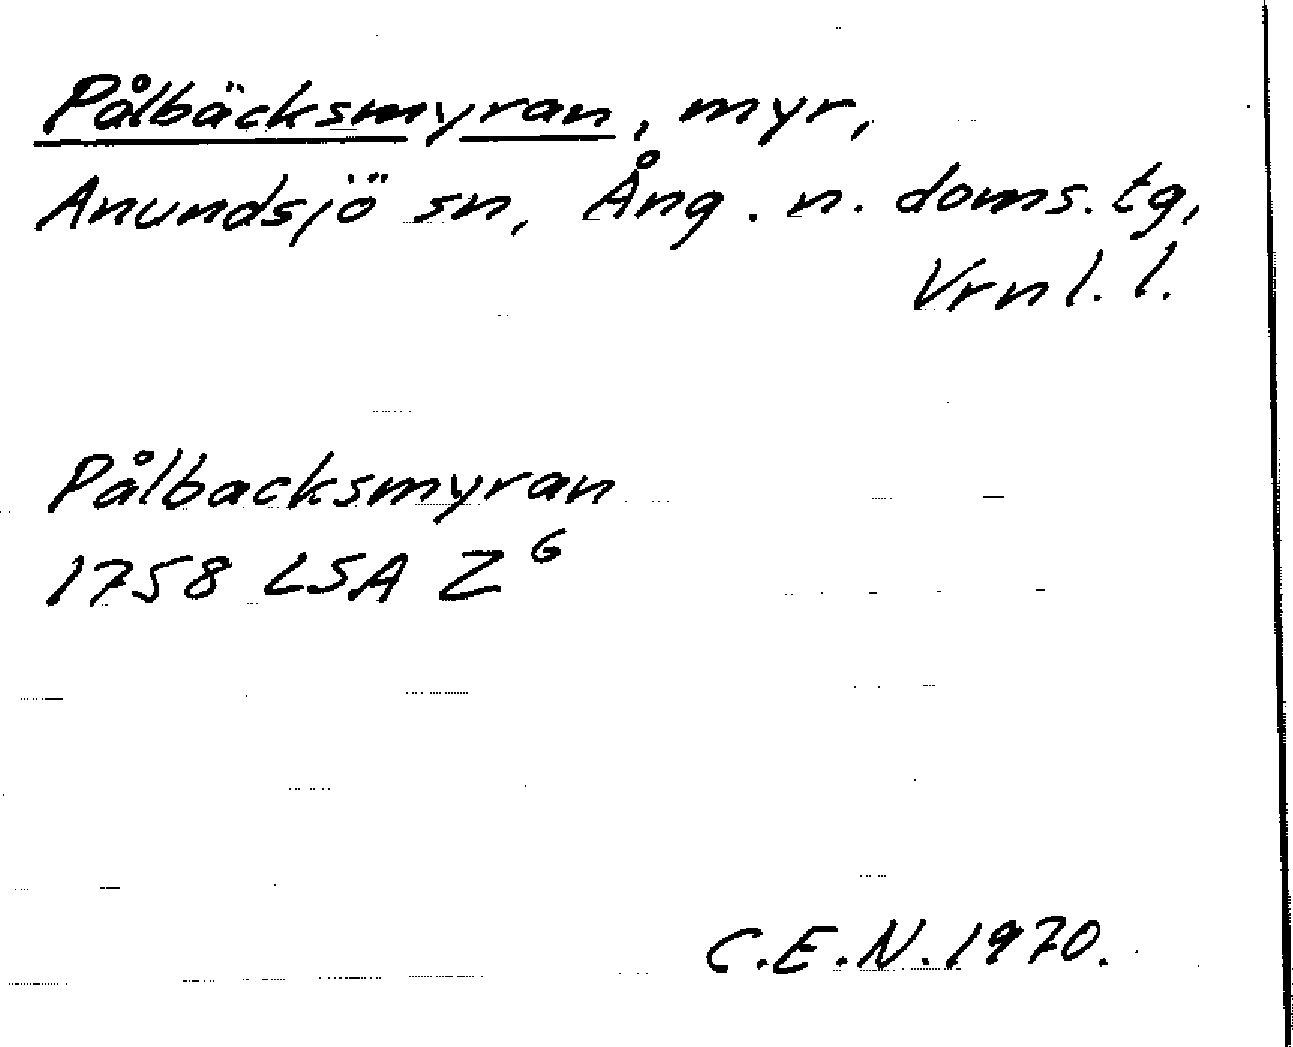 Pålbäcksmyran, myr,
Anundsjö sn, Ång. n. doms. tg,
Vrnl. l.
Pålbacksmyran
1758 LSA Z⁶
C.E.N. 1970.